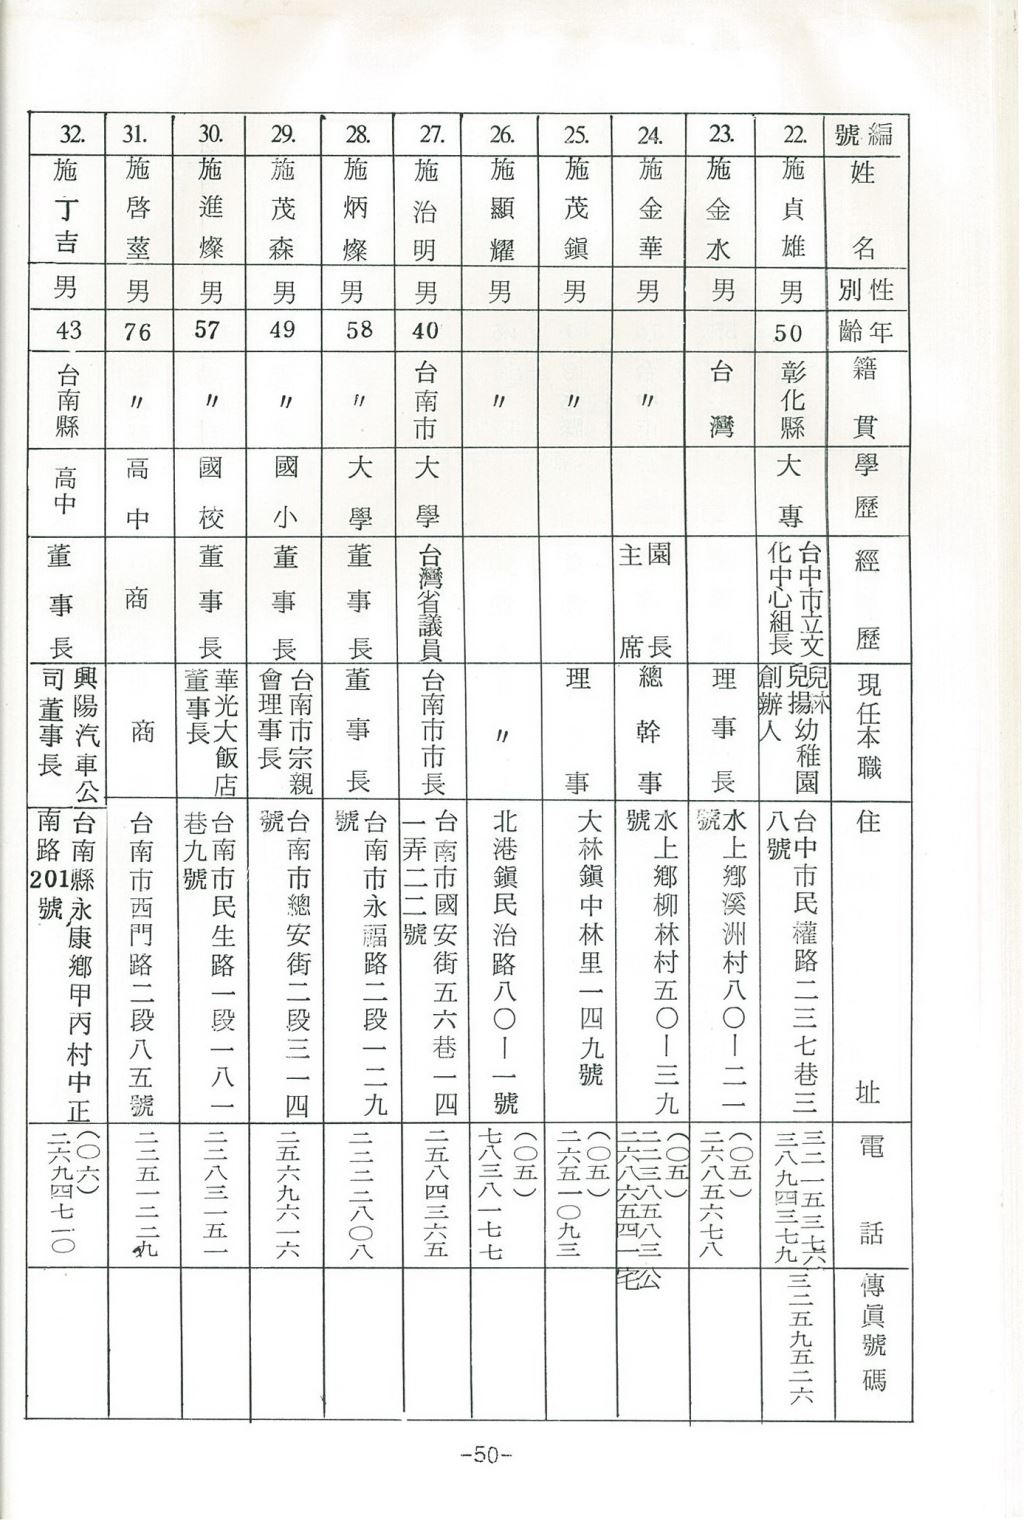 編號 姓名 性別 年齡 籍貫 學歷 經歷 現任本職 住址 電話 傳眞號碼
22. 施貞雄 男 50 彰化縣 大專 台中市立文化中心組長 兒林兒揚幼稚園創辦人 台中市民權路二三七巷三八號 三二一五三七六 三八九四三七九 三二五九五二六
23. 施金水 男 台灣 理事長 水上鄉溪洲村八〇－二一號 （〇五）二六八五六七八
24. 施金華 男 〃 園長 主席 總幹事 水上鄉柳林村五〇－三九號 （〇五）二二三八五八三公 二六八六五四一宅
25. 施茂鎭 男 〃 理事 大林鎭中林里一四九號 （〇五）二六五一〇九三
26. 施顯耀 男 〃 〃 北港鎭民治路八〇－一號 （〇五）七八三八一七七
27. 施治明 男 40 台南市 大學 台灣省議員 台南市市長 台南市國安街五六巷一四一弄二二號 二五八四三六五
28. 施炳燦 男 58 〃 大學 董事長 董事長 台南市永福路二段一二九號 二二二二八〇八
29. 施茂森 男 49 〃 國小 董事長 台南市宗親會理事長 台南市總安街二段三一四號 二五六九六一六
30. 施進燦 男 57 〃 國校 董事長 華光大飯店董事長 台南市民生路一段一八一巷九號 二二八三一五一
31. 施啓莖 男 76 〃 高中 商 商 台南市西門路二段八五號 二二五一二二九
32. 施丁吉 男 43 台南縣 高中 董事長 興陽汽車公司董事長 台南縣永康鄉甲丙村中正南路201號 （〇六）二六九四七一〇
-50-